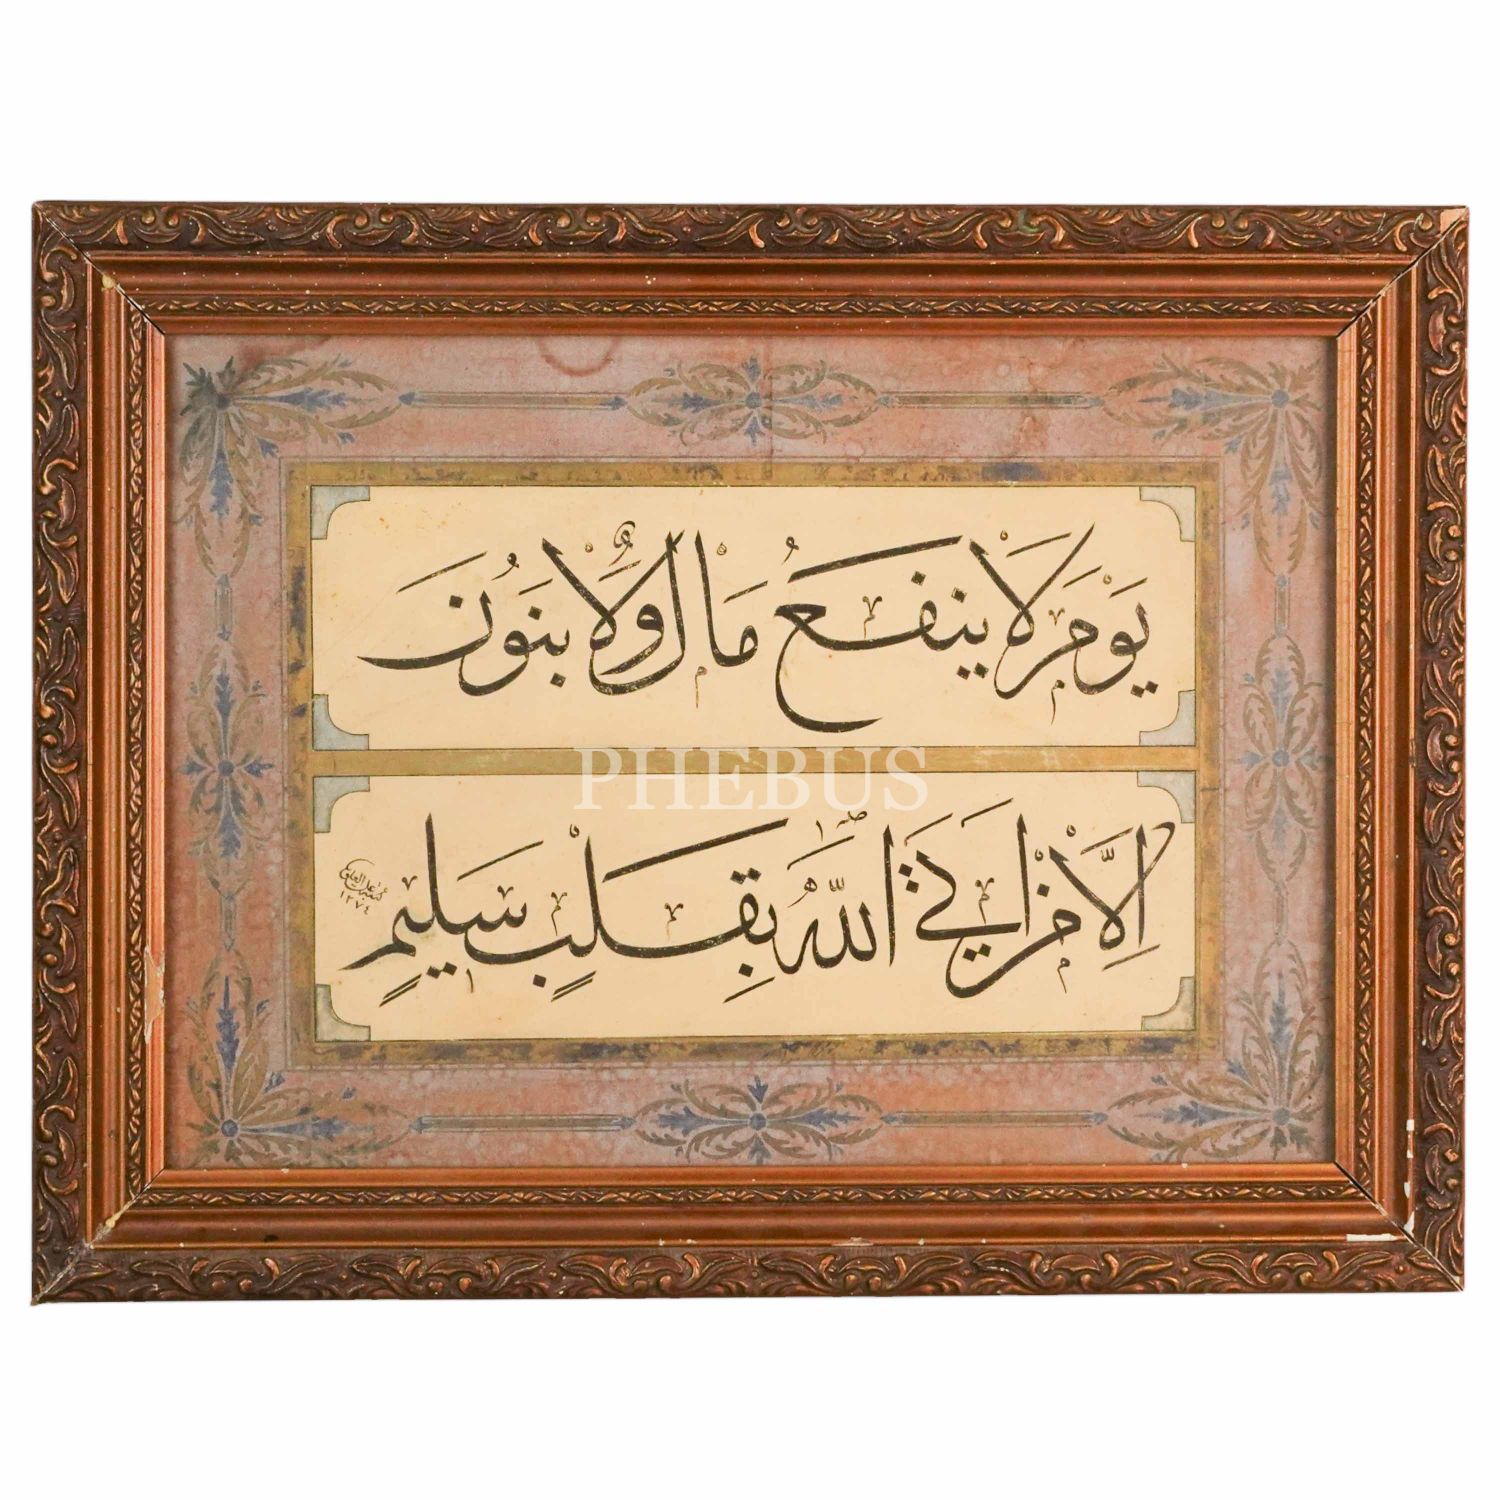 يَوْمَ لَا ينفَعُ مَالٌ وَلَا بَنُونَ
PHEBUS
اِلَّا مَنْ اَتَى اللّٰهَ بِقَلْبٍ سَلِيمٍ
١٢٧٤